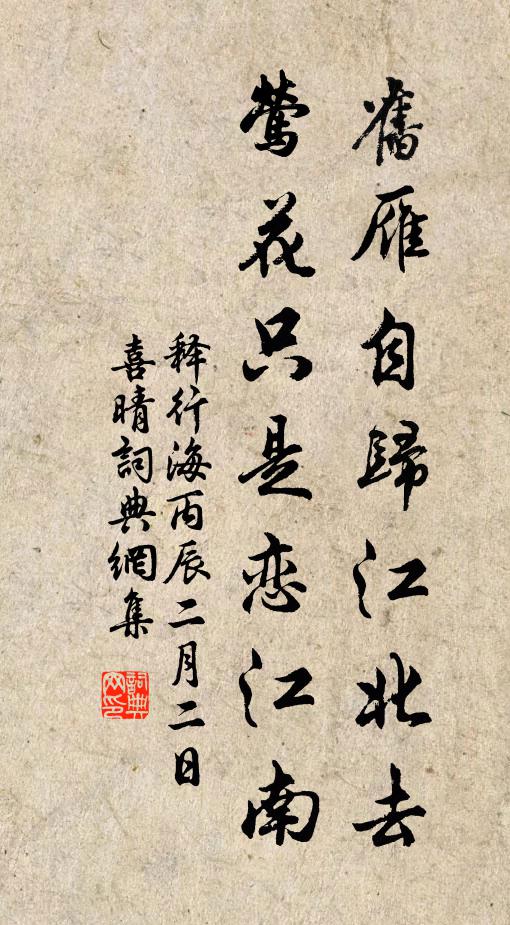 舊雁自歸江北去
鶯花只是恋江南
释行海丙辰二月二日
喜晴詞典網集
詞典网印